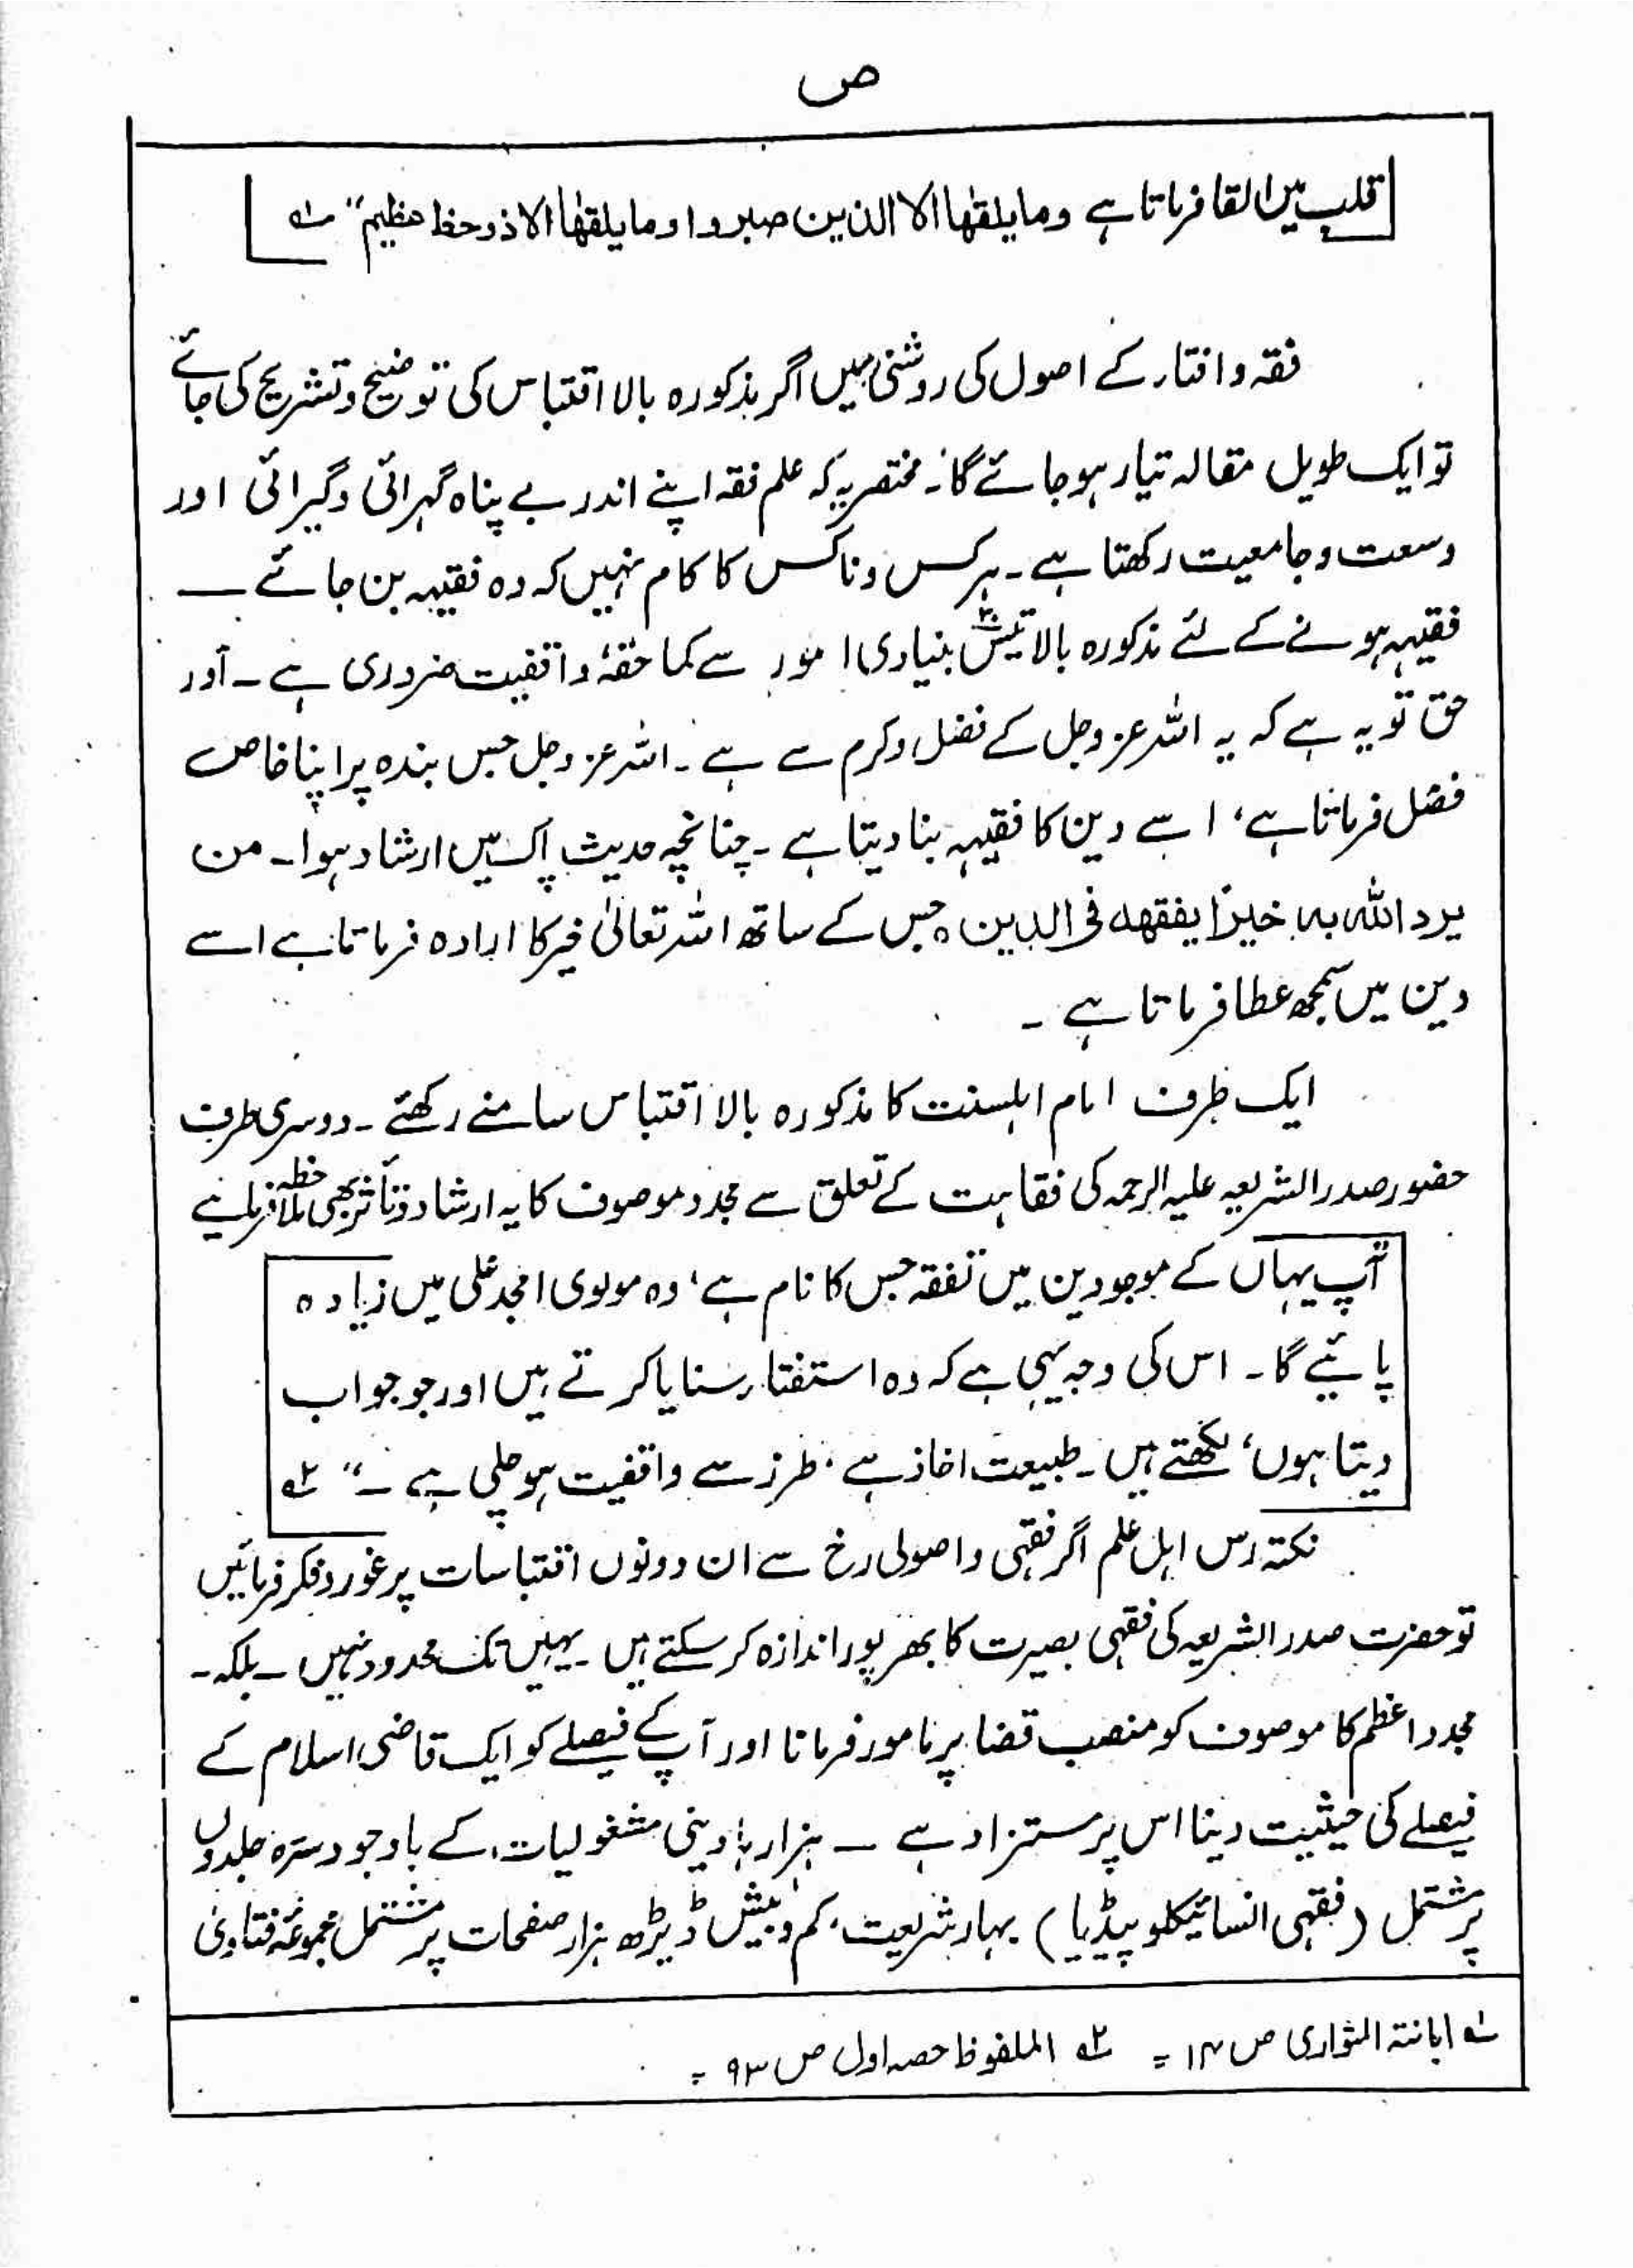 ص
قلب میں القا فرماتا ہے وما یلقٰھا الا الذین صبروا وما یلقٰھا الا ذو حظ عظیم" ؎۱
فقہ و افتاء کے اصول کی روشنی میں اگر مذکورہ بالا اقتباس کی توضیح و تشریح کی جائے
تو ایک طویل مقالہ تیار ہو جائے گا۔ مختصر یہ کہ علم فقہ اپنے اندر بے پناہ گہرائی و گیرائی اور
وسعت و جامعیت رکھتا ہے۔ ہر کس و ناکس کا کام نہیں کہ وہ فقیہہ بن جائے ــ
فقیہہ ہونے کے لئے مذکورہ بالا تیس۳۰ بنیادی امور سے کما حقہٗ واقفیت ضروری ہے ۔ اور
حق تو یہ ہے کہ یہ اللہ عز وجل کے فضل و کرم سے ہے ۔ اللہ عز وجل جس بندہ پر اپنا خاص
فضل فرماتا ہے، اسے دین کا فقیہہ بنا دیتا ہے ۔ چنانچہ حدیث پاک میں ارشاد ہوا۔ من
یرد اللہ بہ خیرًا یفقھہ فی الدین ہ جس کے ساتھ اللہ تعالیٰ خیر کا ارادہ فرماتا ہے اسے
دین میں سمجھ عطا فرماتا ہے ۔
ایک طرف امام اہلسنت کا مذکورہ بالا اقتباس سامنے رکھئے ۔ دوسری طرف
حضور صدر الشریعہ علیہ الرحمہ کی فقاہت کے تعلق سے مجدد موصوف کا یہ ارشاد و تأثر بھی ملاحظہ فرمایئے
"آپ یہاں کے موجودین میں تفقہ جس کا نام ہے، وہ مولوی امجد علی میں زیادہ
پائیے گا ۔ اس کی وجہ یہی ہے کہ وہ استفتاء سنایا کرتے ہیں اور جو جواب
دیتا ہوں، لکھتے ہیں ۔ طبیعت اخاذ ہے، طرز سے واقفیت ہو چلی ہے ۔" ؎۲
نکتہ رس اہل علم اگر فقہی و اصولی رخ سے ان دونوں اقتباسات پر غور و فکر فرمائیں
تو حضرت صدر الشریعہ کی فقہی بصیرت کا بھر پور اندازہ کر سکتے ہیں ۔ یہیں تک محدود نہیں ۔ بلکہ ۔
مجدد اعظم کا موصوف کو منصب قضاء پر مامور فرمانا اور آپ کے فیصلے کو ایک قاضی اسلام کے
فیصلے کی حیثیت دینا اس پر مستزاد ہے ــ ہزار ہا دینی مشغولیات، کے باوجود سترہ جلدوں
پر مشتمل (فقہی انسائیکلو پیڈیا) بہار شریعت، کم و بیش ڈیڑھ ہزار صفحات پر مشتمل مجموعۂ فتاویٰ
؎۱ ابانۃ المتواری ص ۱۴ = ؎۲ الملفوظ حصہ اول ص ۹۳ =